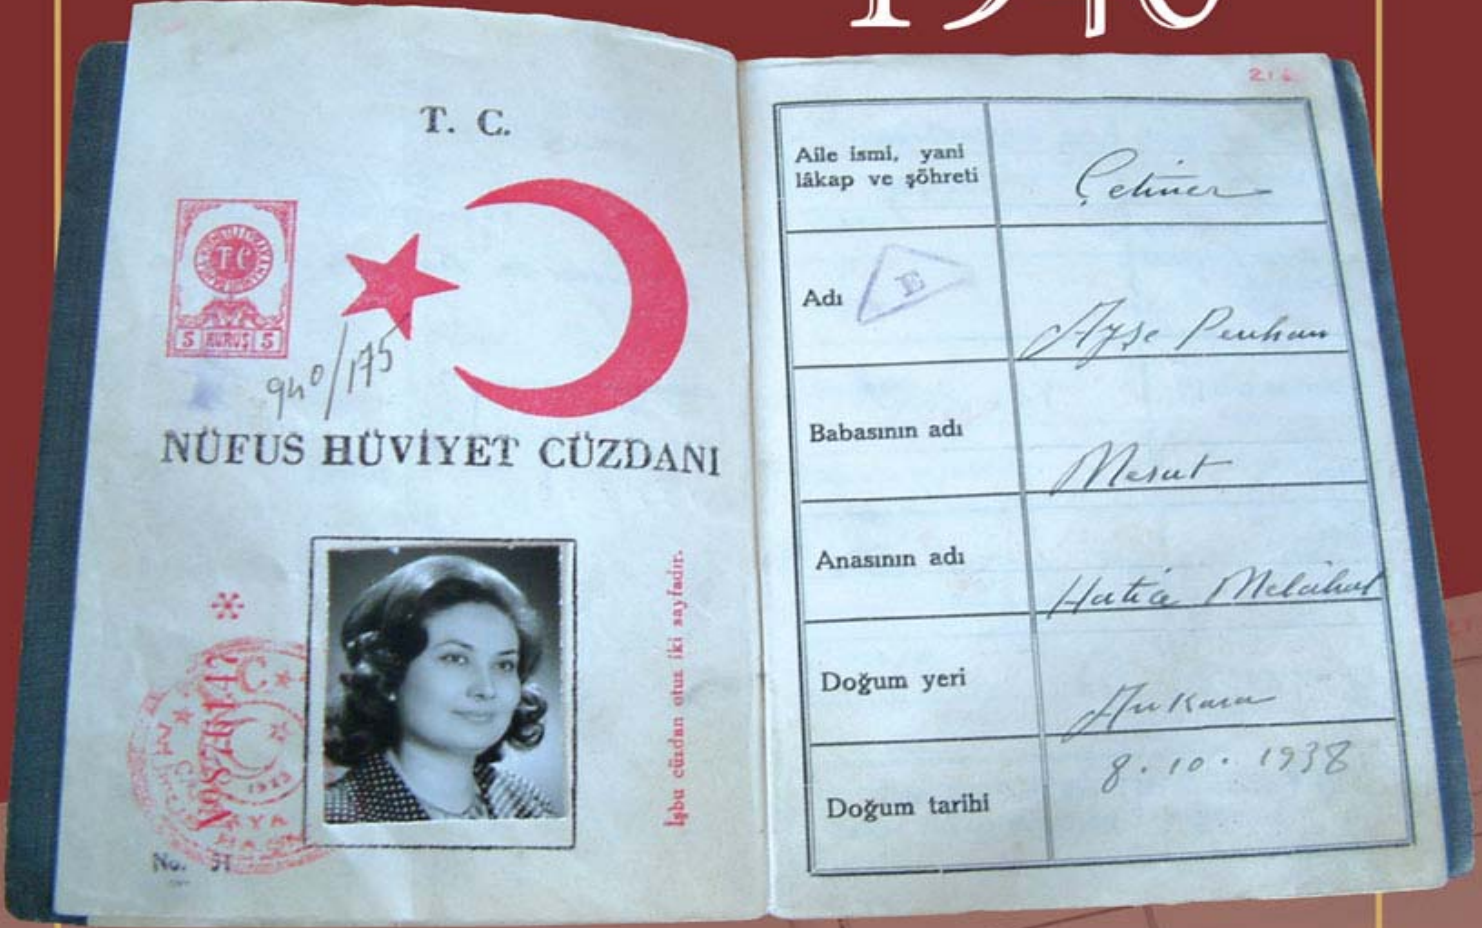 T. C.
T C
5 KURUŞ 5
940/175
NÜFUS HÜVİYET CÜZDANI
İşbu cüzdan otuz iki sayfadır.
No.
Aile ismi, yani
lâkap ve şöhreti
Çetiner
Adı
E
Ayşe Perihan
Babasının adı
Mesut
Anasının adı
Hatice Melâhat
Doğum yeri
Ankara
Doğum tarihi
8.10.1938